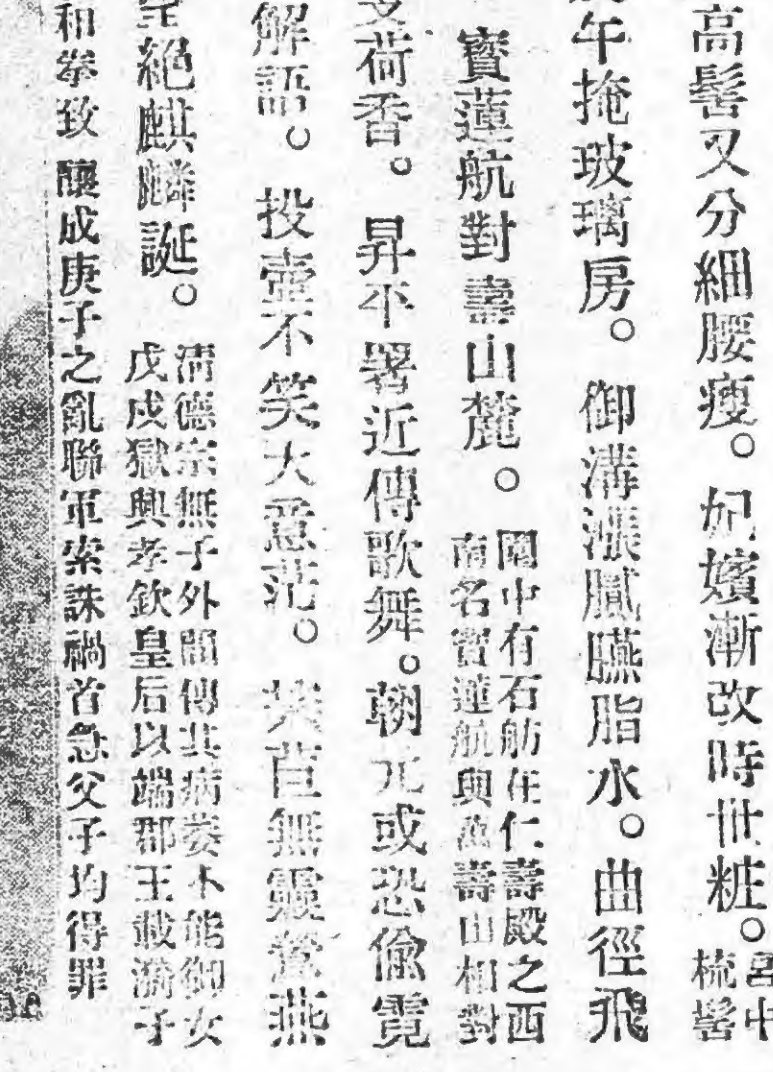 高髻又分細腰瘦。妃嬪漸改時世粧。宮中
梳髻
午掩玻璃房。御溝漲膩臙脂水。曲徑飛
寳蓮航對壽山麓。園中有石舫在仁壽殿之西
南名寳蓮航與萬壽山相對
荷香。昇平署近傳歌舞。朝元或恐偸霓
解語。投壺不笑大意茫。芣苢無靈燕
絕麒麟誕。清德宗無子外間傳其病萎不能御女
戊戌獄興孝欽皇后以端郡王載漪子
和拳致釀成庚子之亂聯軍索誅禍首急父子均得罪